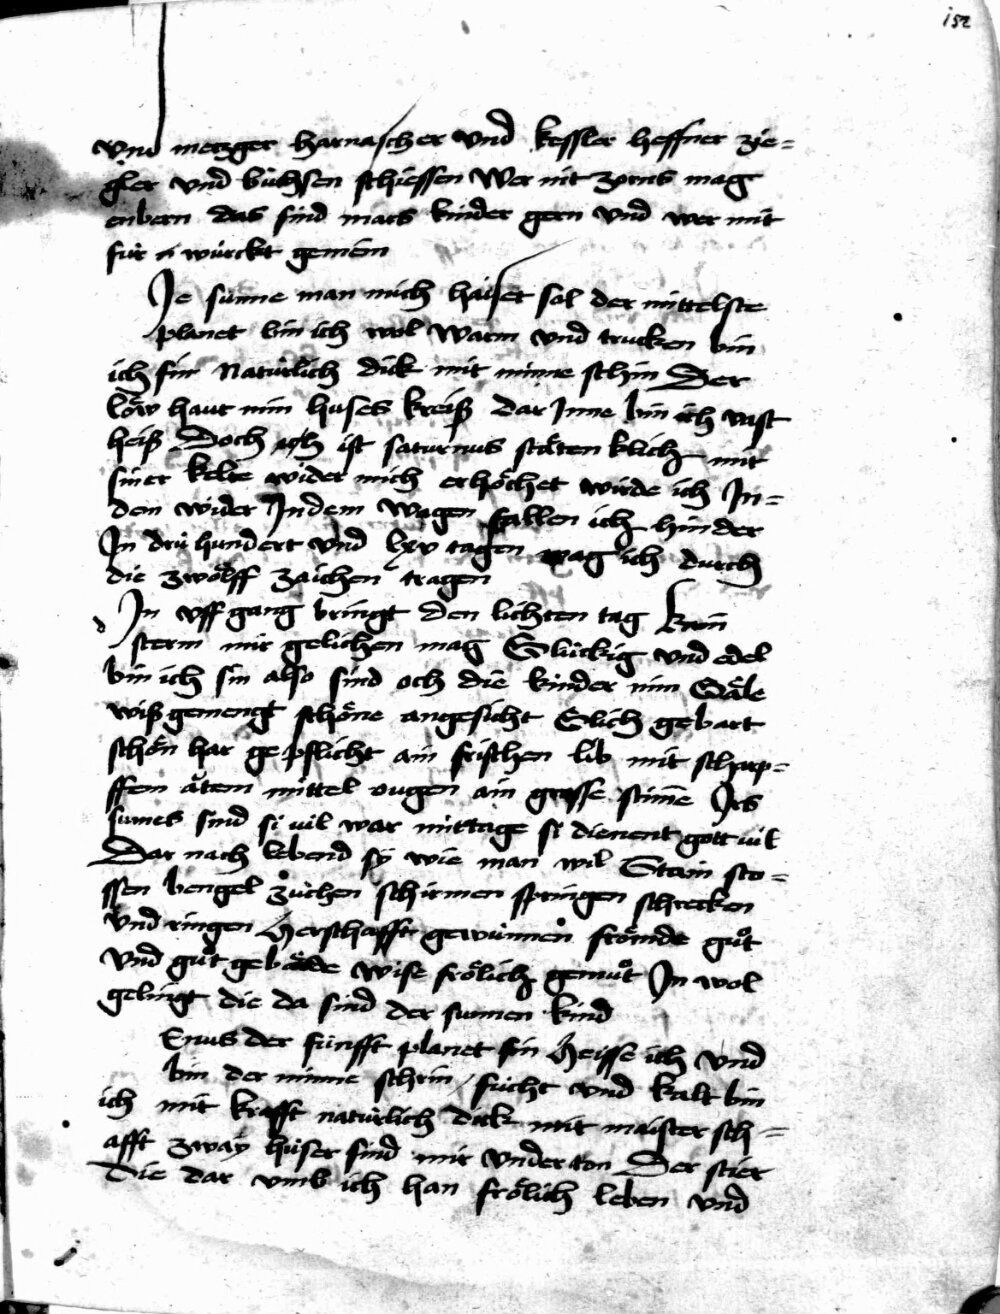 152
vnd metzger harnascher vnd kessler heffner zie=
gler vnd büchsen schiessen Wer nit zorns mag
enbern das sind mars kinder gern vnd wer mit
für n würckt gemein
Je sunne man mich haiset sol der mittelste
planet bin ich wol Warm vnd trucken bin
ich sin Natürlich dick mit minne schin Der
löw haut min huses kreiß Dar Inne bin ich vast
heiß Doch ist saturnus stätenklich mit
siner kelte wider mich erhöchet wirde ich In=
dem wider Jndem wagen fallen ich hinder
In drü hundert vnd lxv tagen mag ich durch
die zwölff zaichen tragen
In vff gang bringt den lichten tag kein
stern mir gelichen mag Glückig vnd edel
bin ich sin also sind och die kinder min Gäle
wiß gemengt schöne angesicht Elich gebart
schön har gepflicht ain frischen lib mit scharp=
ffem åtem mittel ougen ain grosse stime Irs
sumes sind si vil war mittage si dienent gott vil
Dar nach lebend sy wie man wil Stain sto=
ssen bengel züchen schirmen springen schrecken
vnd ringen Herschafft gewünnen frömde gůt
vnd gůt gebärde wise frölich gemůt In wol
gelingt die da sind der sunnen kind
Enus der fünfft planet fin Heisse ich vnd
bin der minne schrin / fücht vnd kalt bin
ich mit krafft natürlich dick mit maister sch=
afft zway hüser sind mir vnderton Der stier
Die dar vmb ich han frölich leben vnd